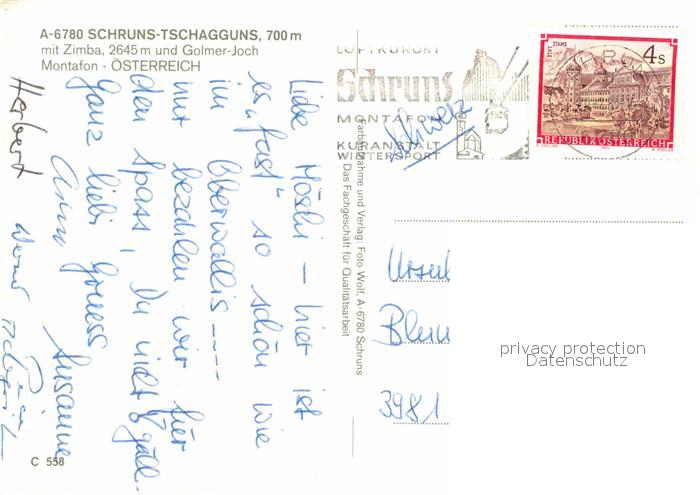 A-6780 SCHRUNS-TSCHAGGUNS, 700 m
mit Zimba, 2645 m und Golmer-Joch
Montafon - ÖSTERREICH
Liebe Möslu – hier ist
es "fast" so schön wie
im Oberwallis ----
nur bezahlen wir für
den Spass, Du nicht? gäll.
Ganz liebi Gruess
Susanne
Herbert
C 558
Farbaufnahme und Verlag: Foto Wolf, A-6780 Schruns
Das Fachgeschäft für Qualitätsarbeit
LUFTKURORT
Schruns
MONTAFON
KURANSTALT
WINTERSPORT
STIFT STAMS
4 S
REPUBLIK ÖSTERREICH
Schweiz
Ursul
Blum
3981
privacy protection
Datenschutz